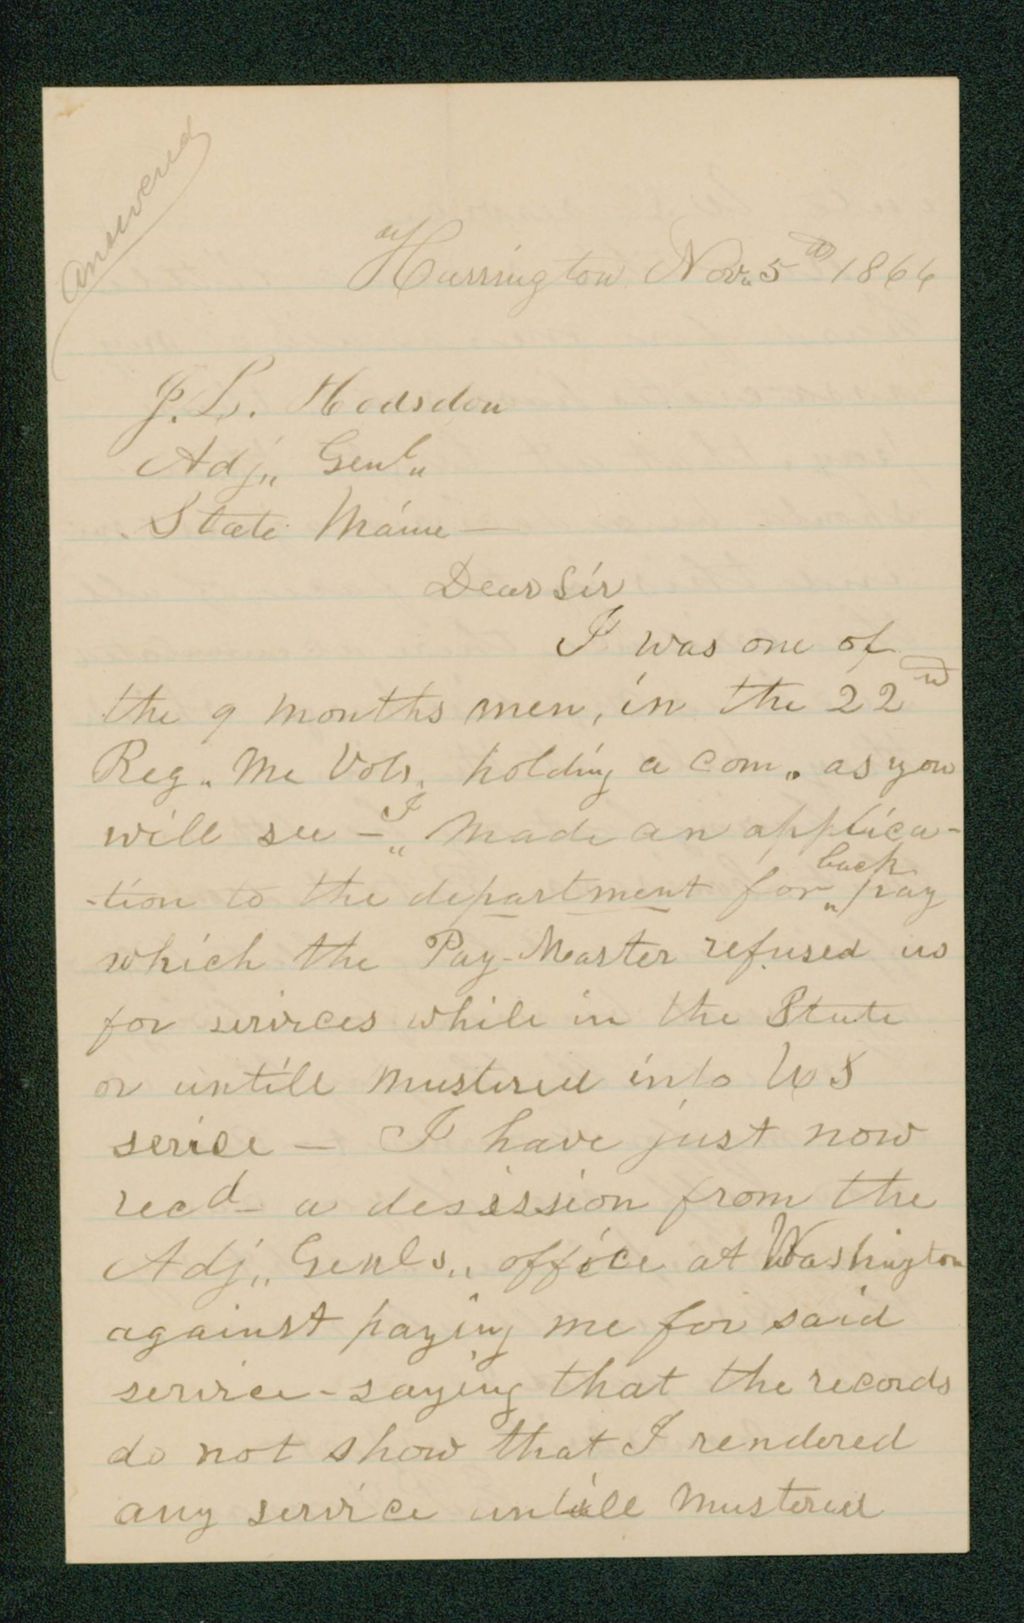 Answered
Harrington Nov. 5th 1866
J. L. Hodsdon
Adj,, Genl,,
State Maine —
Dear Sir
I was one of
the 9 months men, in the 22nd
Reg,, Me Vols. holding a com,, as you
will see – I made an applica-
-tion to the department for back pay
which the Pay-Master refused us
for services while in the State
or untill mustered into US
serice – I have just now
recd– a desission from the
Adj,, Genls,, office at Washington
against paying me for said
service – saying that the records
do not show that I rendered
any service untill mustered